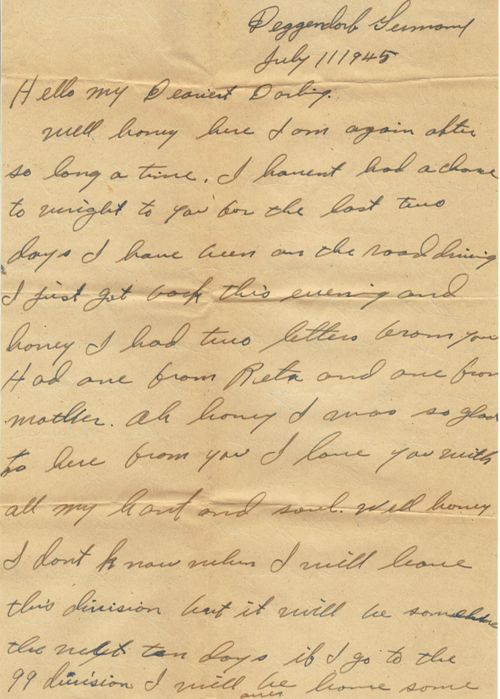 Deggendorf Germany
July 1 1945
Hello my Dearest Darling.
Well honey here I am again after
so long a time. I havent had a chance
to wright to you for the last two
days I have been on the road driving
I just got back this evening and
honey I had two letters from you
Had one from Reta and one from
mother. Ah honey I was so glad
to here from you I love you with
all my hart and soul. Well honey
I dont know when I will leave
this division but it will be sometime
the next ten days if I go to the
99 division I will be home some